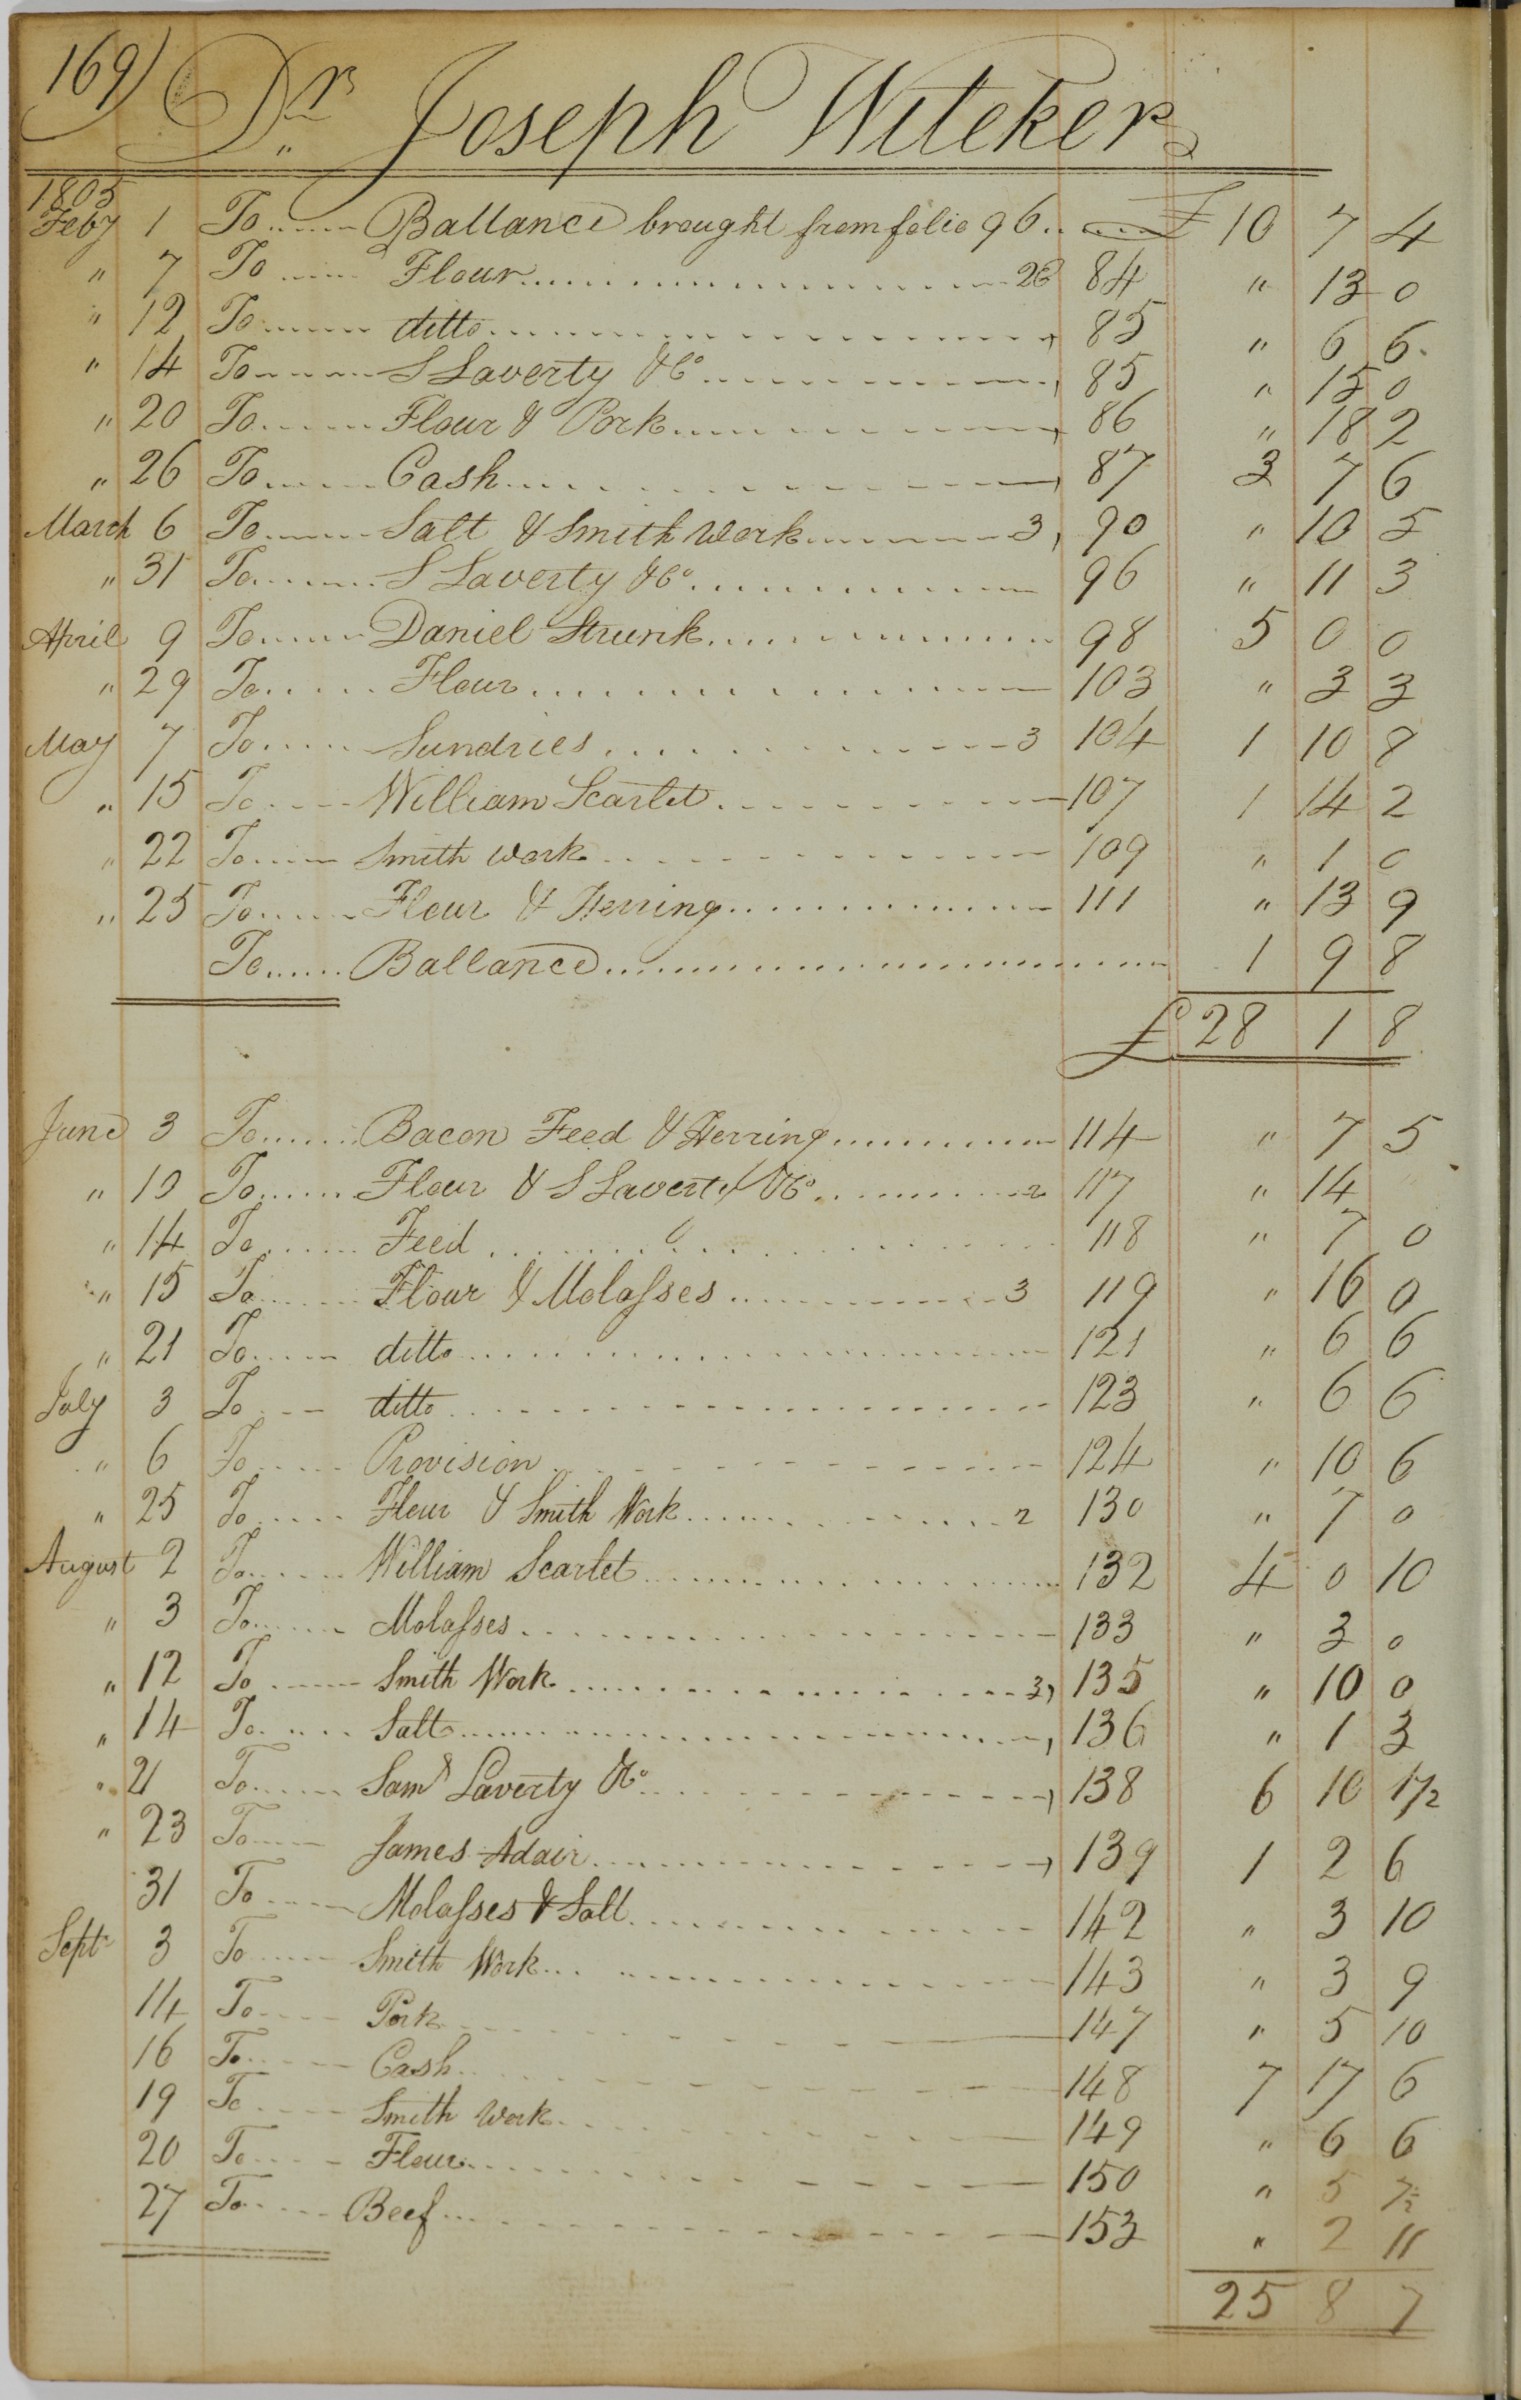 169) Dr. Joseph Witeker
1805
Feby 1 To Ballance brought from folio 96 £ 10 7 4
" 7 To Flour 2 84 " 13 0
" 12 To ditto 85 " 6 6
" 14 To S Laverty & Co 85 " 15 0
" 20 To Flour & Pork 86 " 18 2
" 26 To Cash 87 3 7 6
March 6 To Salt & Smith Work 3 90 " 10 5
" 31 To S Laverty & Co 96 " 11 3
April 9 To Daniel Strunk 98 5 0 0
" 29 To Flour 103 " 3 3
May 7 To Sundries 3 104 1 10 8
" 15 To William Scarlet 107 1 14 2
" 22 To Smith Work 109 " 1 0
" 25 To Flour & Herring 111 " 13 9
To Ballance 1 9 8
£ 28 1 8
June 3 To Bacon Feed & Herring 114 " 7 5
" 10 To Flour & S Laverty & Co 2 117 " 14
" 14 To Feed 118 " 7 0
" 15 To Flour & Molasses 3 119 " 16 0
" 21 To ditto 121 " 6 6
July 3 To ditto 123 " 6 6
" 6 To Provision 124 " 10 6
" 25 To Flour & Smith Work 2 130 " 7 0
August 2 To William Scarlet 132 4 0 10
" 3 To Molasses 133 " 3 0
" 12 To Smith Work 3 135 " 10 0
" 14 To Salt 136 " 1 3
" 21 To Saml Laverty & Co 138 6 10 1/2
" 23 To James Adair 139 1 2 6
31 To Molasses & Salt 142 " 3 10
Sept 3 To Smith Work 143 " 3 9
14 To Pork 147 " 5 10
16 To Cash 148 7 17 6
19 To Smith Work 149 " 6 6
20 To Flour 150 " 5 7½
27 To Beef 153 " 2 11
25 8 7